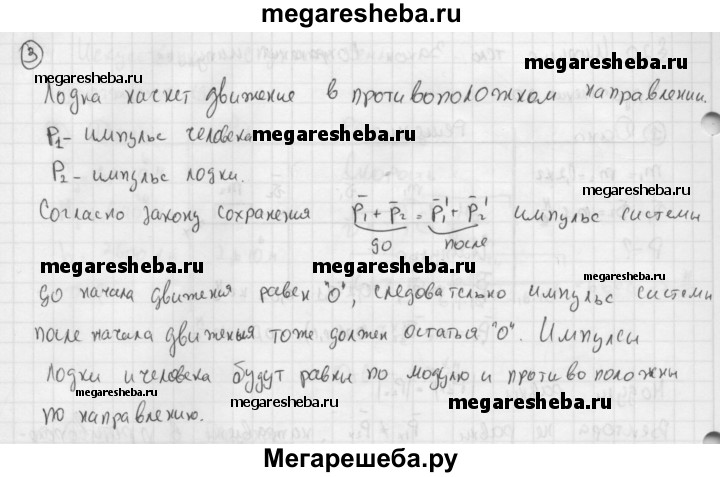 megaresheba.ru
3
megaresheba.ru
megaresheba.ru
Лодка начнет движение в противоположном направлении.
P₁- импульс человека
megaresheba.ru
P₂- импульс лодки.
megaresheba.ru
Согласно закону сохранения P̄₁ + P̄₂ = P̄₁' + P̄₂' импульс системы
до после
megaresheba.ru megaresheba.ru
megaresheba.ru
до начала движения равен "0", следовательно импульс системы
после начала движения тоже должен остаться "0". Импульсы
лодки и человека будут равны по модулю и противоположны
megaresheba.ru
megaresheba.ru megaresheba.ru
по направлению.
Мегарешеба.ру